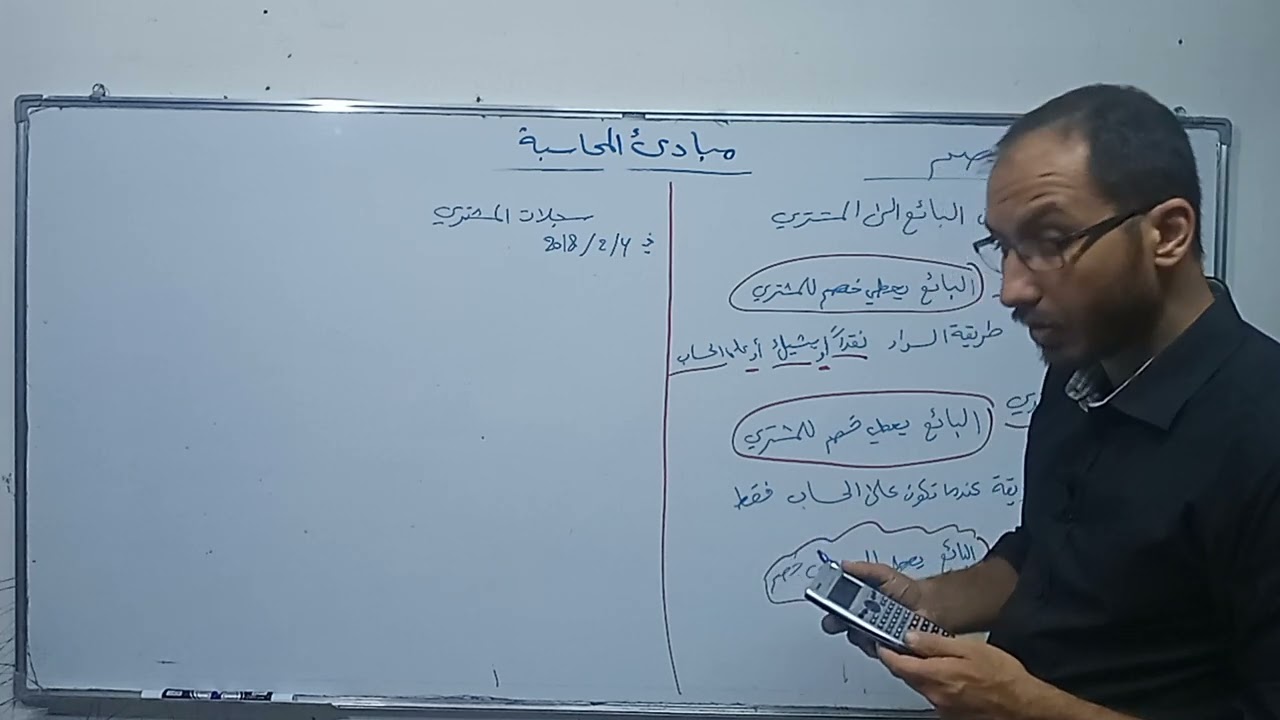 مبادئ المحاسبة
البائع الى المشتري
البائع يعطي خصم للمشتري
طريقة السداد نقداً أو بشيك أو على الحساب
البائع يعطي خصم للمشتري
عندما تكون على الحساب فقط
البائع يعطي خصم
سجلات المشتري
في 2018/2/6